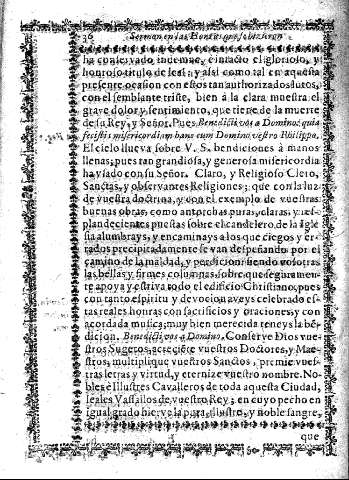 36 Sermon en las Honras que se hizieron
ha conservado indemne, è intacto el glorioso, y
honroso titulo de leal: y assi como tal en aquesta
presente ocasion con estos tan authorizados lutos,
con el semblante triste, bien à la clara muestra el
grave dolor, y sentimiento, que tiene de la muerte
de su Rey, y Señor. Pues Benedicti vos à Domino, quia
fecistis misericordiam hanc cum Domino vestro Philippo.
El cielo llueva sobre V. S. bendiciones à manos
llenas, pues tan grandiosa, y generosa misericordia
ha vsado con su Señor. Claro, y Religioso Clero,
Sanctas, y observantes Religiones; que con la luz
de vuestra doctrina, y con el exemplo de vuestras
buenas obras, como antorchas puras, claras, y res-
plandecientes puestas sobre el candelero de la Igle
sia alumbrays, y encaminays a los que ciegos y er-
rados precipitadamente se van despeñando por el
camino de la maldad, y perdicion: siendo vosotras
las bellas y firmes columnas, sobre que seguramen-
te apoya y estriva todo el edificio Christiano, pues
con tanto espiritu y devocion aveys celebrado es-
tas reales honras con sacrificios y oraciones, y con
acordada musica; muy bien merecida teneys la bē-
dicion. Benedicti vos a Domino. Conserve Dios vue-
stros Sugetos, acreciēte vuestros Doctores, y Mae-
stros, multiplique vuestros Sanctos, premie vues-
tras letras y virtud, y eternize vuestro nombre. No-
bles è Illustres Cavalleros de toda aquesta Ciudad,
leales Vassallos de vuestro Rey; en cuyo pecho en
igual grado hierve la pura, illustre, y noble sangre,
que